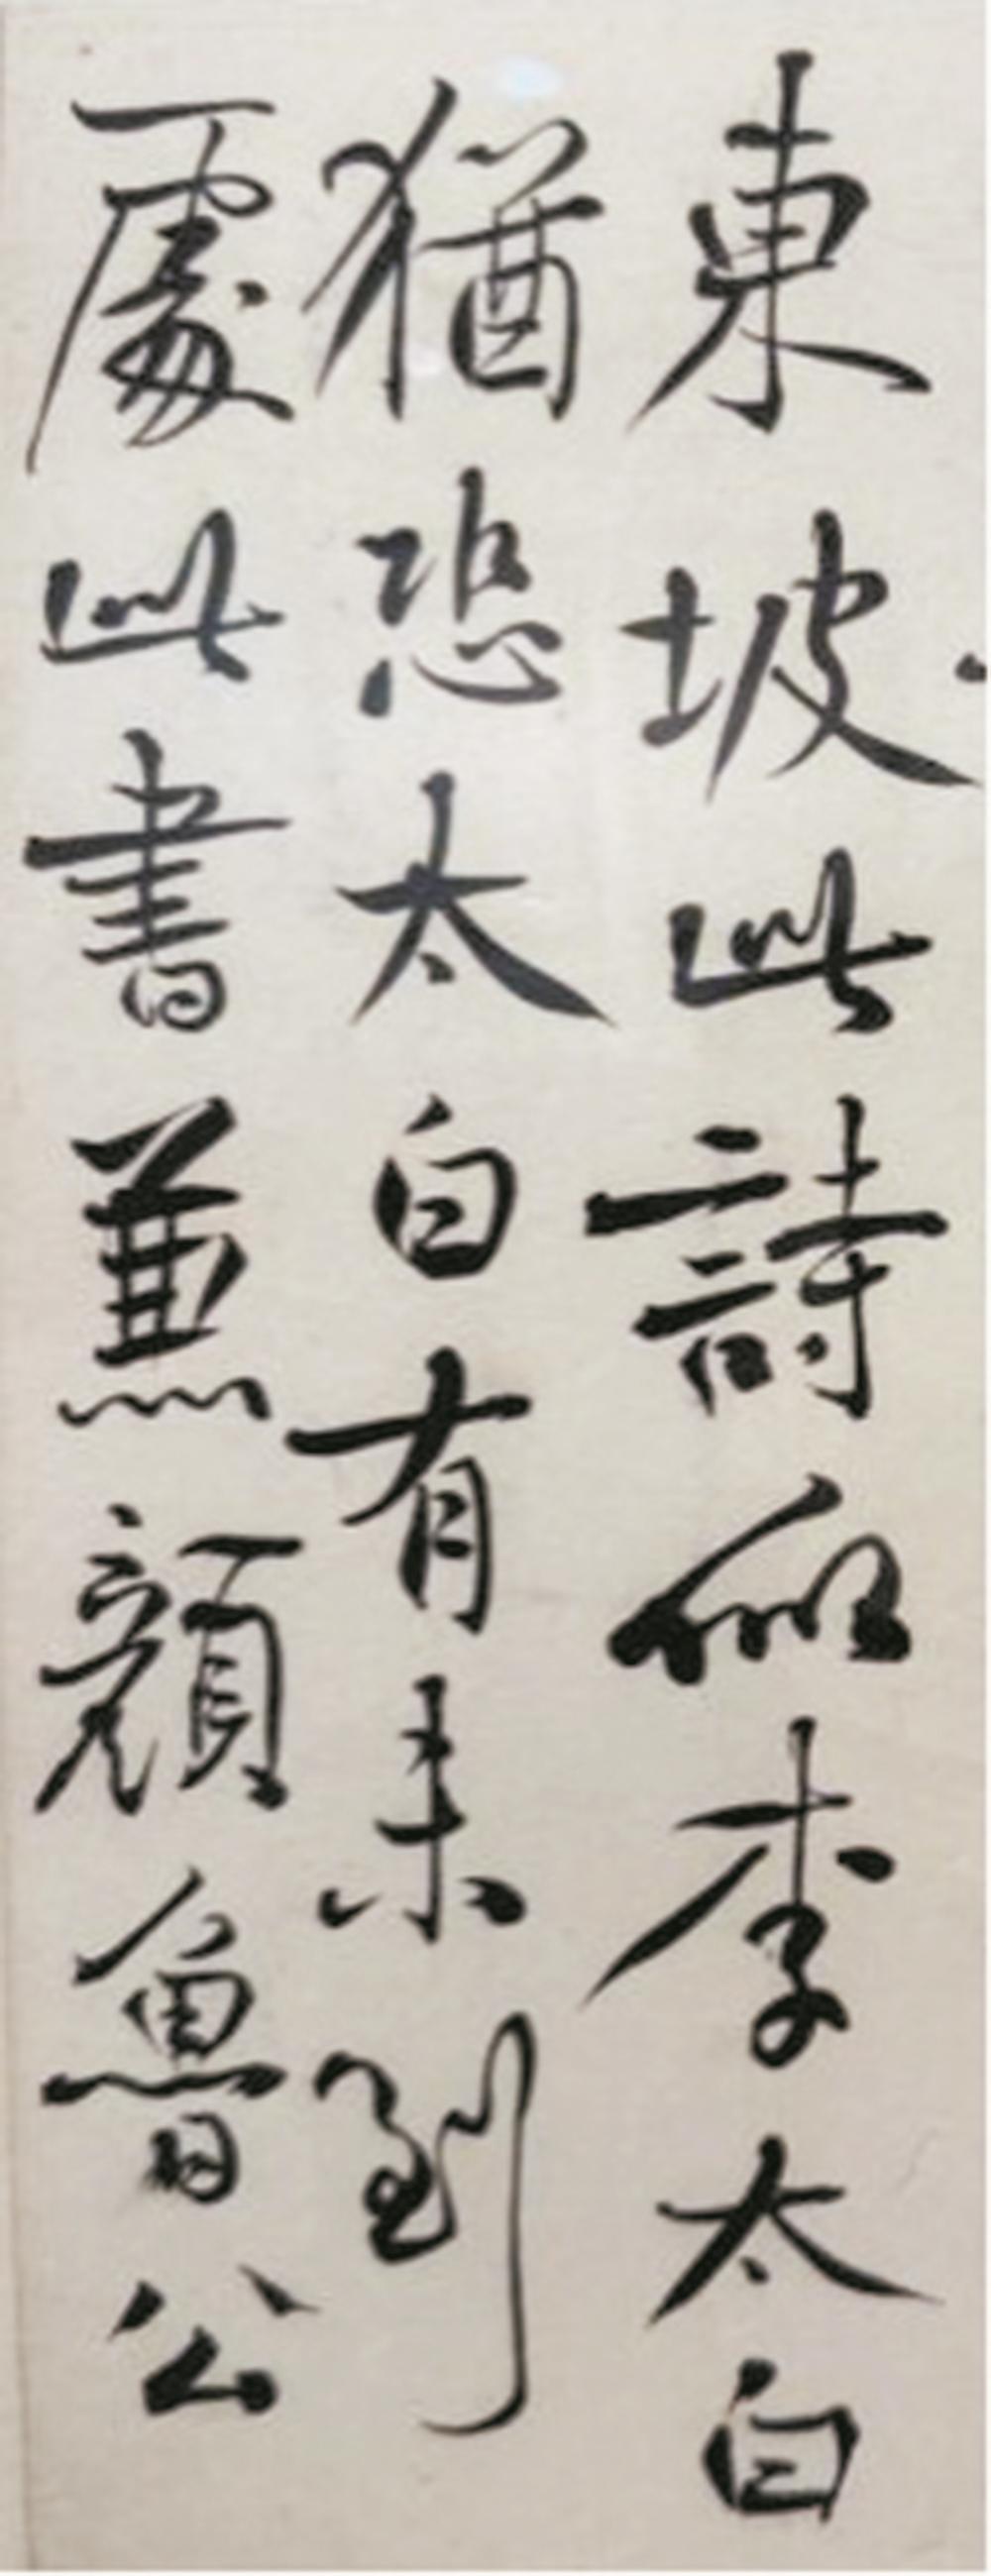 東坡此詩似李太白
猶恐太白有未到
處此書兼顏魯公